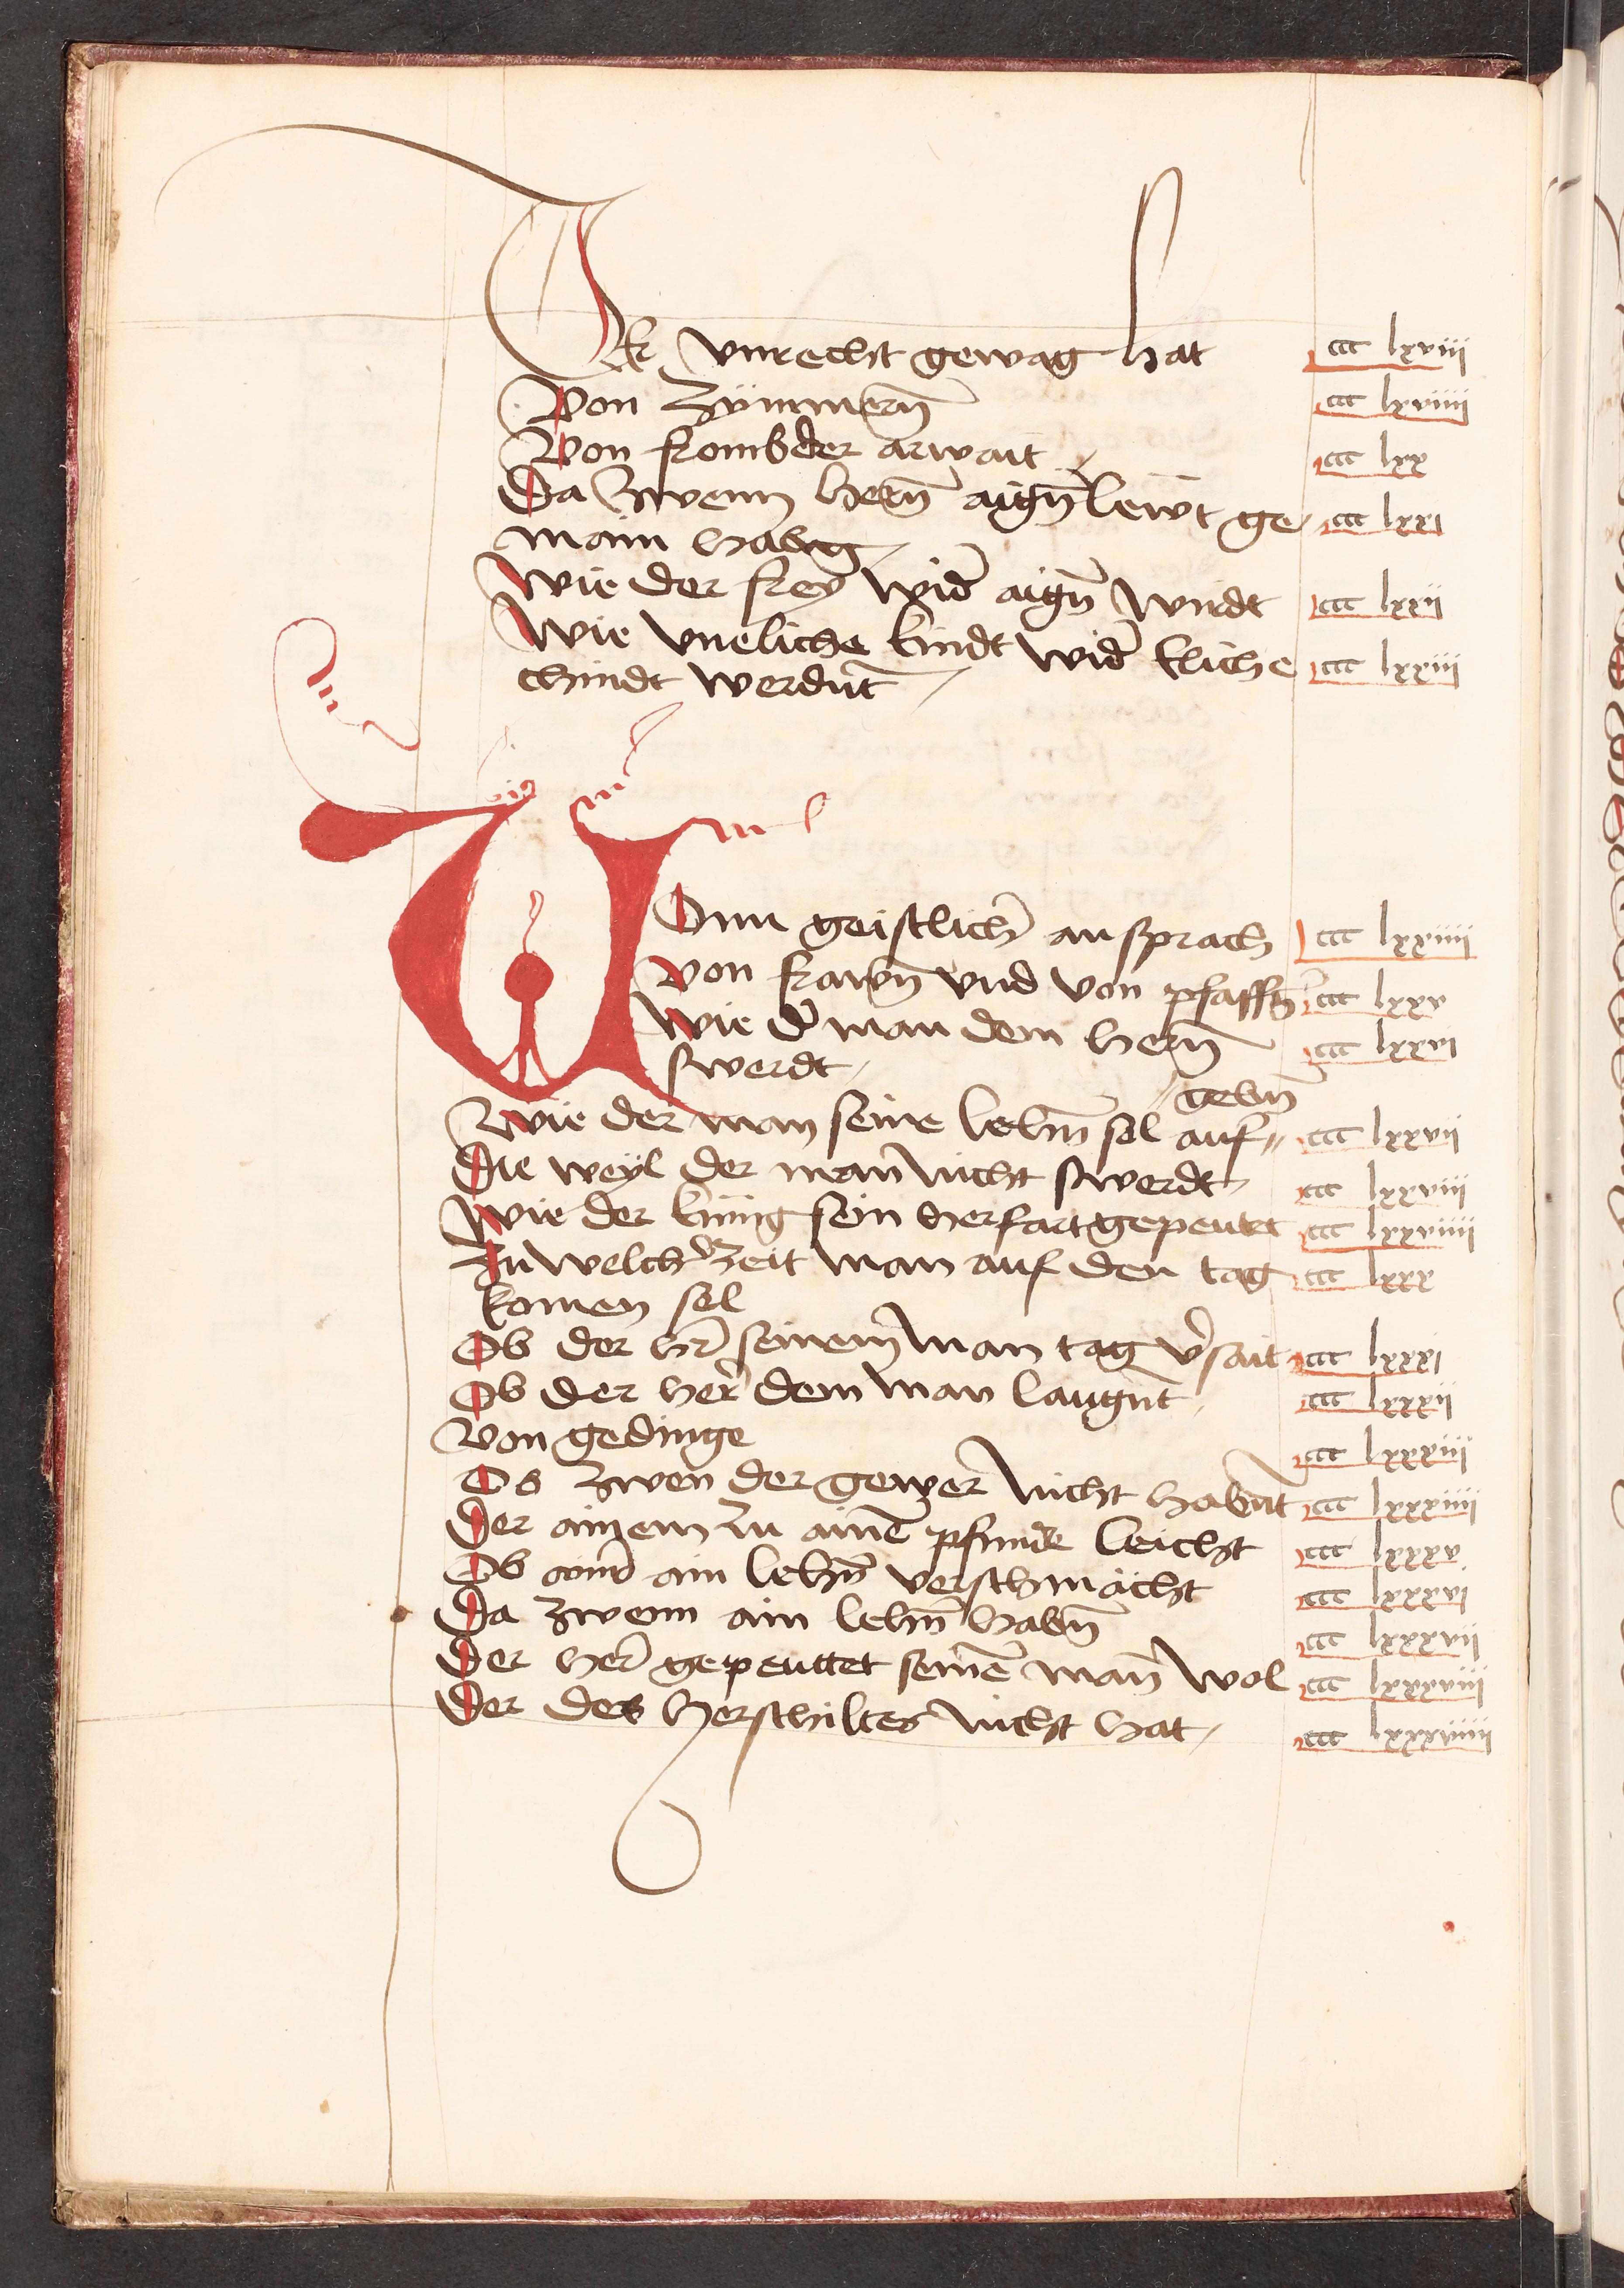 Der vnrecht gewag hat ccc lxviii
Von Zymmern̄ ccc lxviiii
Von frombder arwait ccc lxx
Da zwenn hern̄ aign̄ lewt ge- ccc lxxi
main habn̄
Wie der frey wid̄ aign̄ wirdt ccc lxxii
Wie vneliche kindt wid̄ eliche ccc lxxiii
chindt werdnt̄
Vonn geistlich̄ ansprach ccc lxxiiii
Von frawn̄ vnd von pfaffn̄ ccc lxxv
Wie d̄ man dem hern̄ ccc lxxvi
swerdt
gebn̄
Wie der man seine lehn̄ sol auf ccc lxxvii
Die weyl der man nicht swerdt ccc lxxviii
Wie der kunig sein herfart gepeutet ccc lxxviiii
Zu welch̄ zeit man auf den tag ccc lxxx
komen sol
Ob der hr̄ seinem man tag v̄sait ccc lxxxi
Ob der her̄ dem man laugnt̄ ccc lxxxii
Von gedinge ccc lxxxiii
Ob zwen der gewer nicht habnt̄ ccc lxxxiiii
Der ainem zu ainē pfunde leicht ccc lxxxv
Ob ain lehn̄ verschmächt ccc lxxxvi
Da zwenn ain lehn̄ habn̄ ccc lxxxvii
Der her̄ gepeuttet seinē man wol ccc lxxxviii
Der des herschiltes nicht hat ccc lxxxviiii